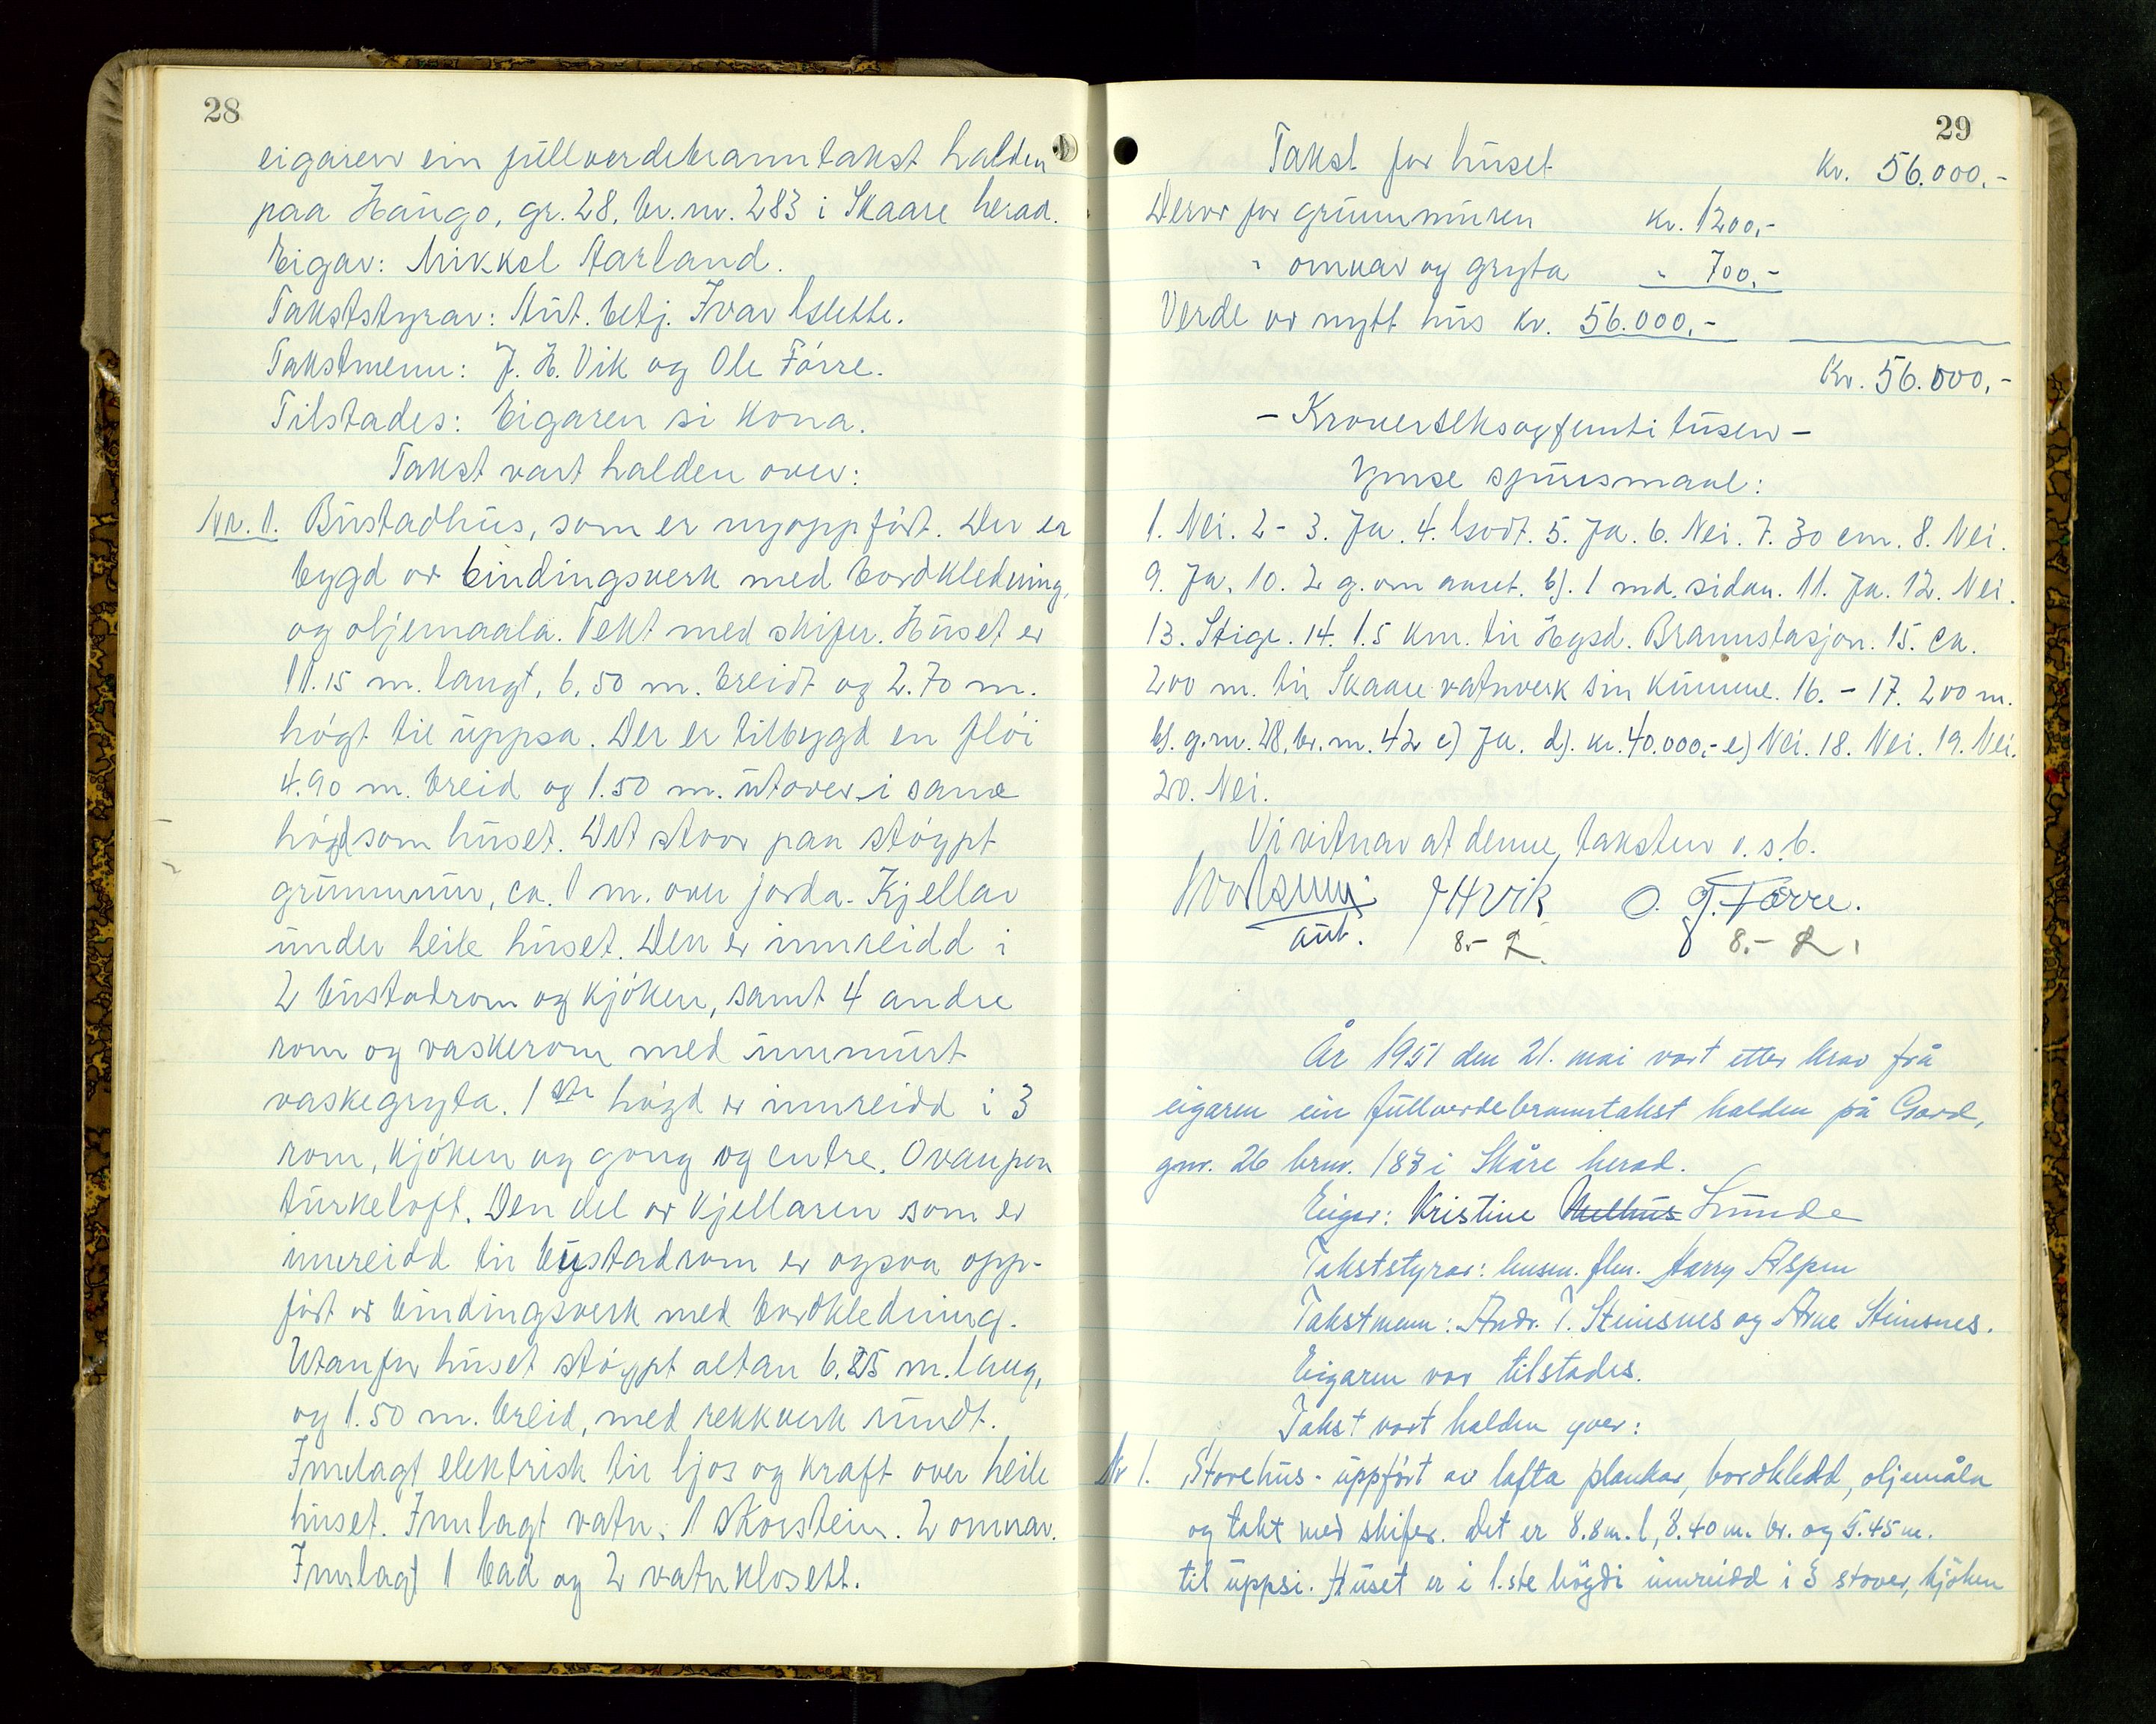 28
eigaren ein fullverdebranntakst halden
paa Haugo, gr. 28, br. nr. 283 i Skaare herad.
Eigar: Mikkel Aarland.
Takststyrar: Aut. betj. Ivar
Takstmenn: J. H. Vik og Ole Førre.
Tilstades: Eigaren si kona.
Takst vart halden over:
Nr. 1. Bustadhus, som er nyoppført. Der er
bygd av bindingsverk med bordkledning,
og oljemaala. Tekt med skifer. Huset er
11.15 m. langt, 6.50 m. breidt og 2.70 m.
høgt til uppsa. Der er tilbygd en fløi
4.90 m. breid og 1.50 m. utover i same
høgd som huset. Det stoor paa støypt
grunnmur, ca. 1 m. over jorda. Kjellar
under heile huset. Den er innreidd i
2 bustadrom og kjøken, samt 4 andre
rom og vaskerom med innmurt
vaskegryta. 1ste høgd er innreidd i 3
rom, kjøken og gong og entre. Ovanpaa
turkeloft. Den del av kjellaren som er
innreidd til bustadrom er ogsaa opp-
ført av bindingsverk med bordkledning.
Utanfor huset støypt altan 6.25 m. lang,
og 1.50 m. breid, med rekkverk rundt.
Innlagt elektrisk til ljos og kraft over heile
huset. Innlagt vatn. 1 skorstein. 2 omnar.
Innlagt 1 bad og 2 vatnklosett.
29
Takst for huset kr. 56.000,-
Derav for grunnmuren kr. 1200,-
" omnar og gryta " 700,-
Verde av nytt hus kr. 56.000,-
Kr. 56.000,-
- Kroner seksogfemti tusen -
Ymse spursmaal:
1. Nei. 2 - 3. Ja. 4. Godt. 5. Ja. 6. Nei. 7. 30 cm. 8. Nei.
9. Ja. 10. 2 g. om aaret. b). 1 md. sidan. 11. Ja. 12. Nei.
13. Stige. 14. 1.5 km. til Hgsd. Brannstasjon. 15. ca.
200 m. til Skaare vatnverk sin kumme. 16. - 17. 200 m.
b). g.nr. 28, br. nr. 42 c) Ja. d). kr. 40.000,- e) Nei. 18. Nei. 19. Nei.
20. Nei.
Vi vitnar at denne taksten o.s.b.
J H Vik O. G. Førre.
aut. 8.- 2. 8.- 2.
År 1951 den 21. mai vart etter krav frå
eigaren ein fullverdebranntakst halden på Gard,
gnr. 26 brnr. 183 i Skåre herad.
Eigar: Kristine Melhus Lunde
Takststyrar: lensm. flm. Harry Aspen
Takstmenn: Andr. T. Steinsnes og Arne Steinsnes.
Eigaren var tilstades.
Takst vart halden yver:
Nr 1. Stovehus - uppført av lafta plankar, bordkledd, oljemåla
og takt med skifer. Det er 8.8 m. l, 8.40 m. br. og 5.45 m.
til uppsi. Huset er i 1.ste høgdi innreidd i 3 stover, kjøken